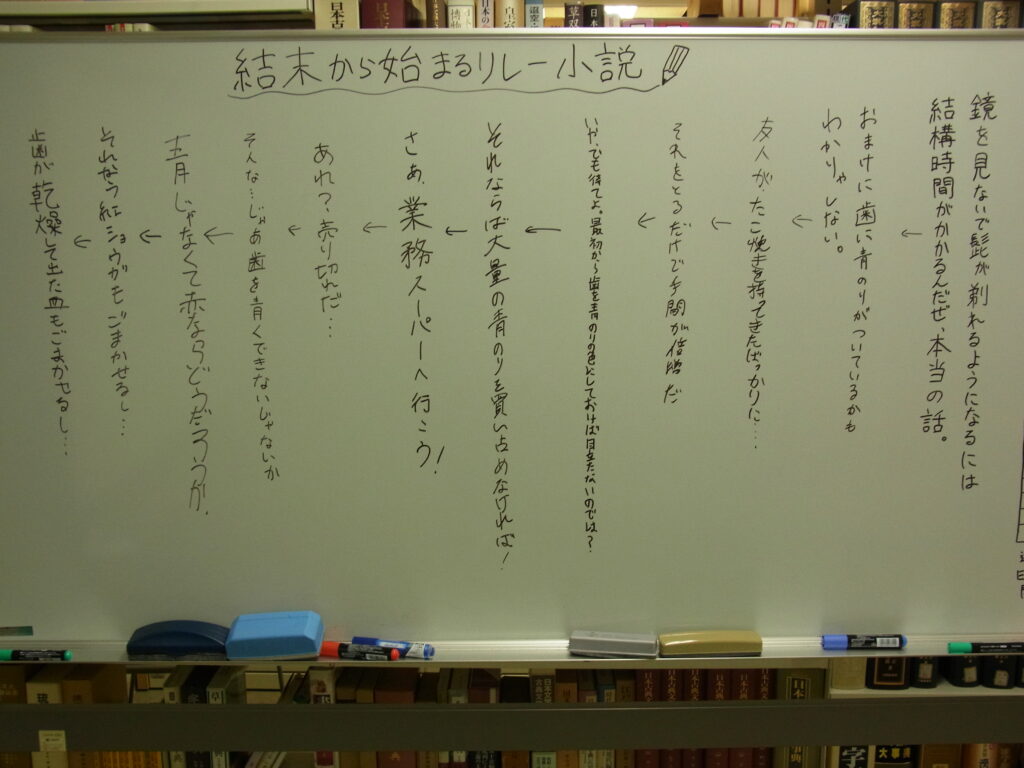 結末から始まるリレー小説
鏡を見ないで髭が剃れるようになるには
結構時間がかかるんだぜ、本当の話。
←
おまけに歯に青のりがついているかも
わかりゃしない。
←
友人がたこ焼きを持ってきたばっかりに…
←
それをとるだけで手間が倍増だ
←
いや、でも待てよ。最初から歯を青のりの色にしておけば目立たないのでは？
←
それならば大量の青のりを買い占めなければ！
←
さあ、業務スーパーへ行こう！
←
あれ？売り切れだ…
←
そんな…じゃあ歯を青くできないじゃないか
←
青じゃなくて赤ならどうだろうか。
←
それなら紅ショウガもごまかせるし…
←
歯が乾燥して出た血もごまかせるし…
日本古
日本